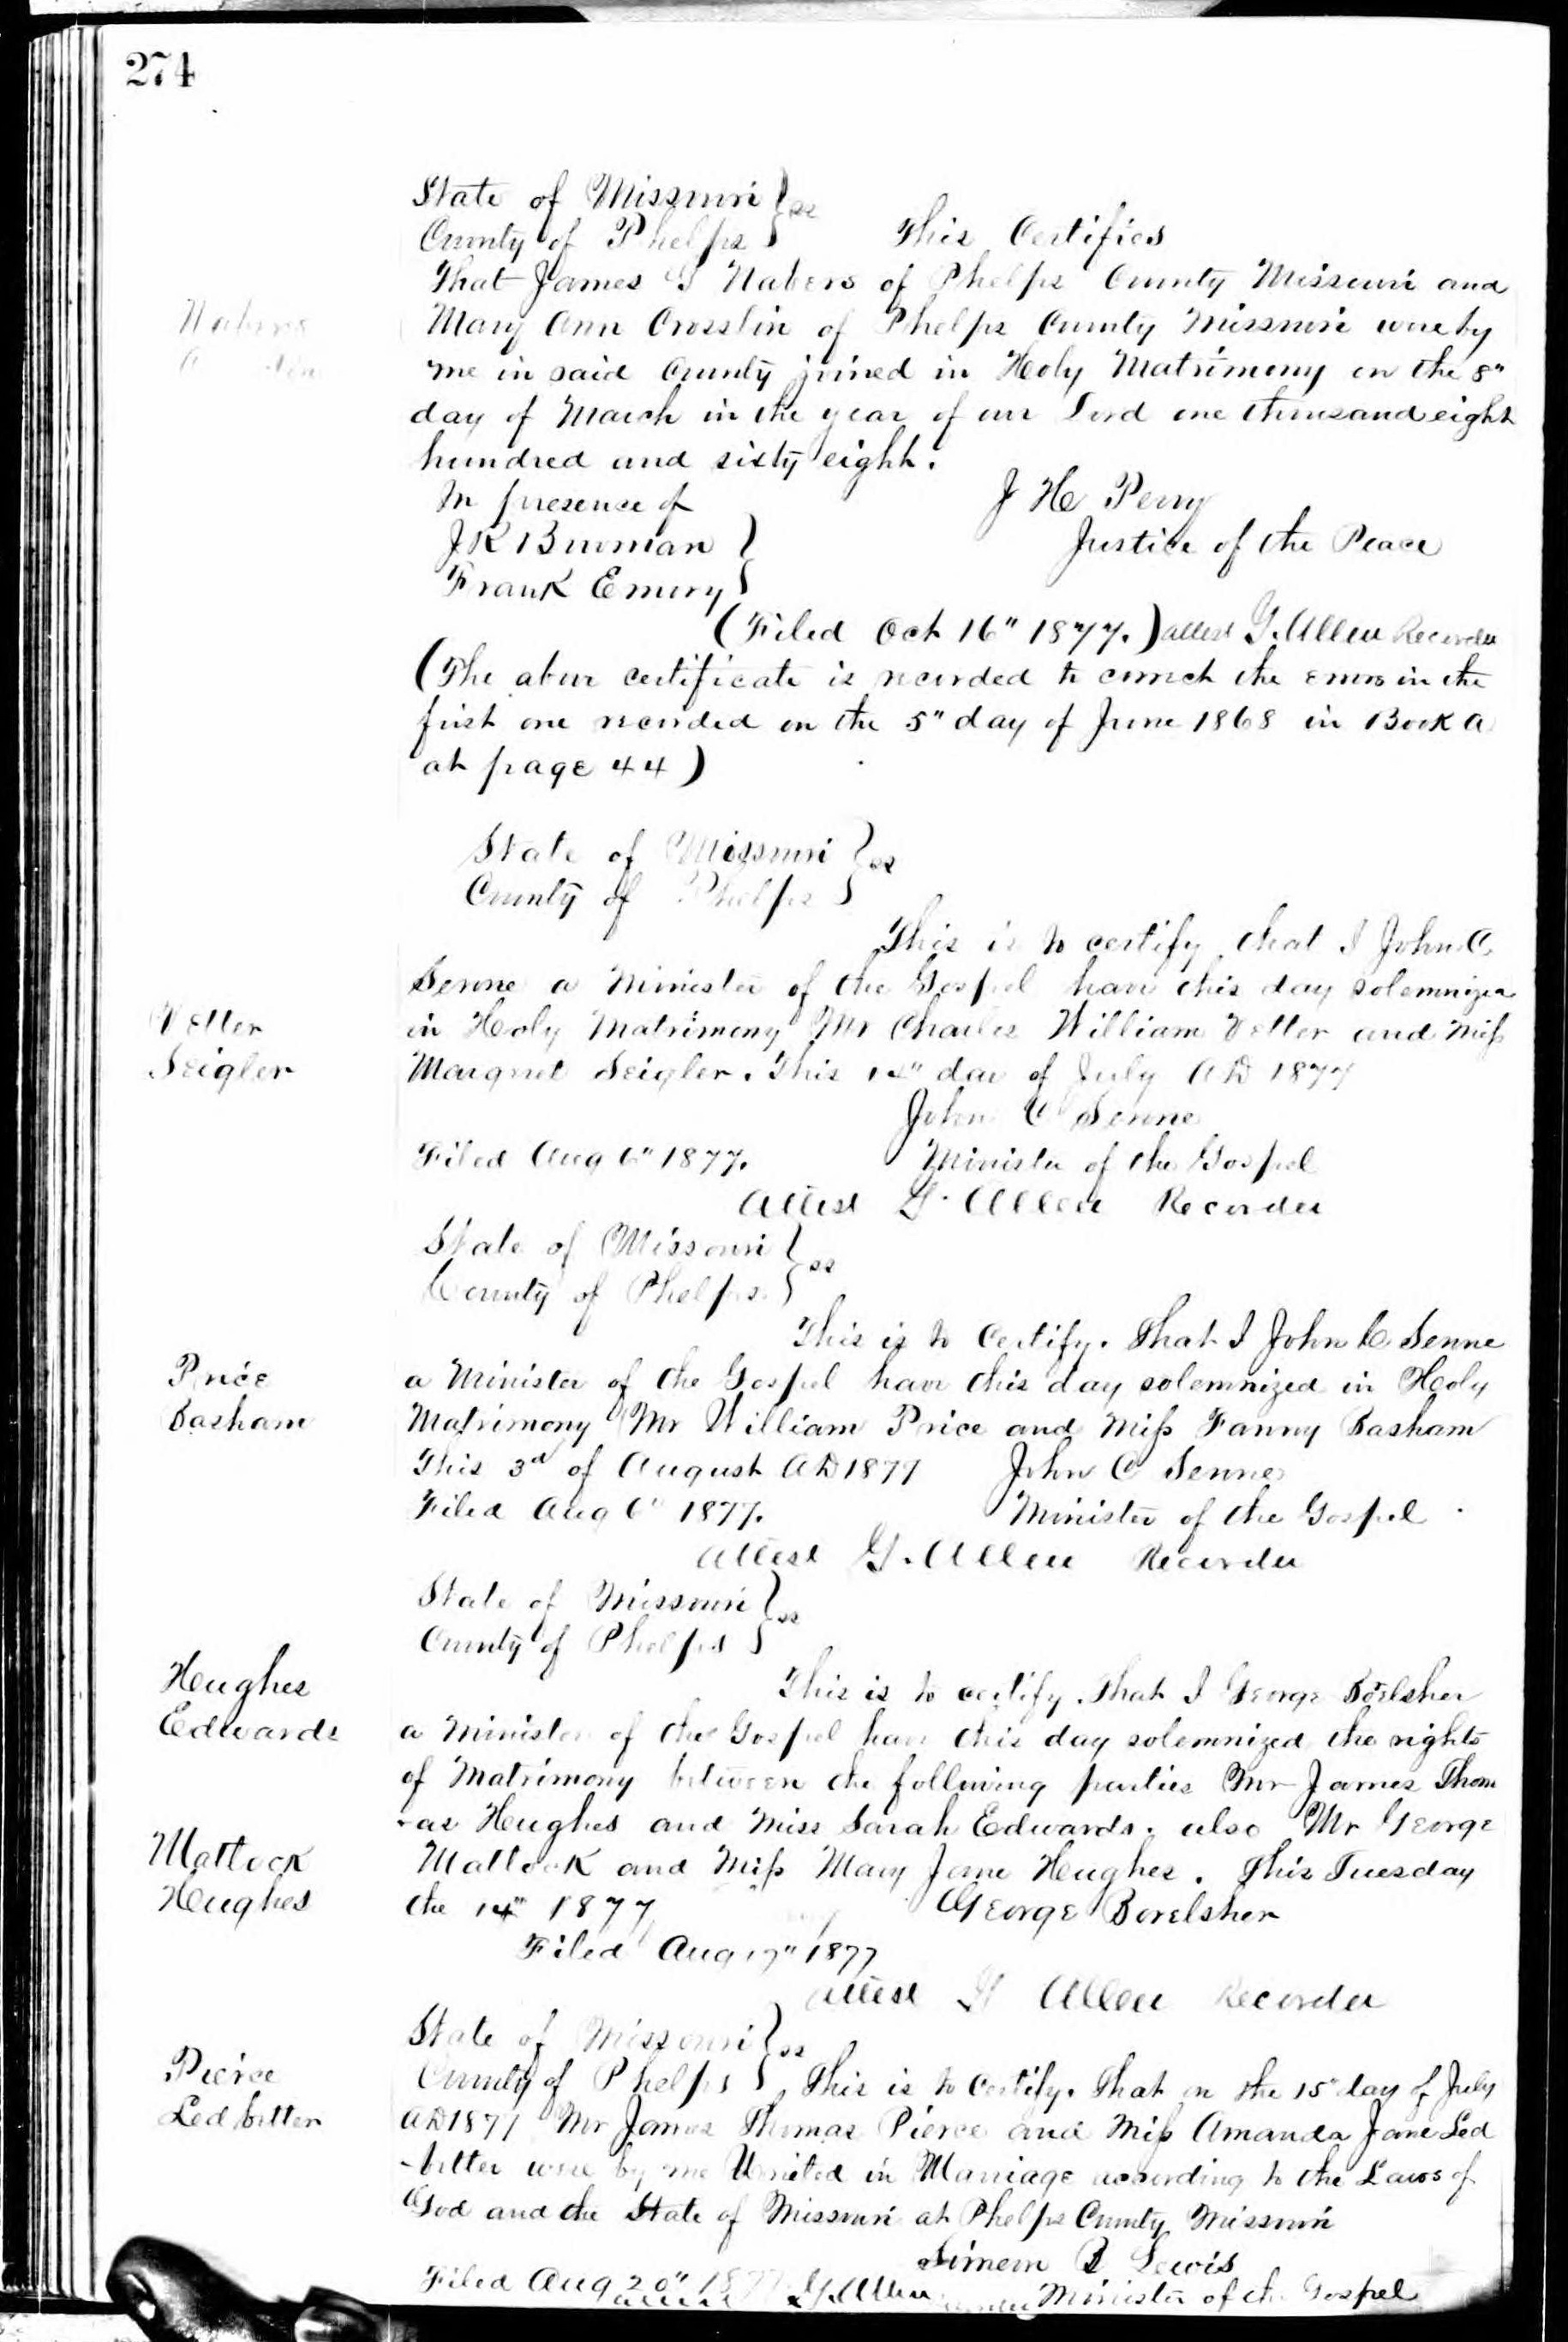 274
State of Missouri } ss
County of Phelps } This Certifies
That James G Nabers of Phelps County Missouri and
Nabers
Mary Ann Crosslin of Phelps County Missouri were by
me in said County joined in Holy Matrimony on the 8"
day of March in the year of our Lord one thousand eight
hundred and sixty eight.
In presence of J H Perry
J K Bowman } Justice of the Peace
Frank Emory }
(Filed Oct 16" 1877.) attest G. Allen Recorder
(The above certificate is recorded to correct the errors in the
first one recorded on the 5" day of June 1868 in Book A
at page 44)
State of Missouri } ss
County of Phelps }
This is to certify that I John C
Senne a Minister of the Gospel have this day solemnized
Vetter
in Holy Matrimony Mr Charles William Vetter and Miss
Seigler
Margret Seigler. This 14" day of July AD 1877
John C Senne
Filed Aug 6" 1877. Minister of the Gospel
Attest G. Allen Recorder
State of Missouri } ss
County of Phelps }
This is to Certify. That I John C Senne
Price
a Minister of the Gospel have this day solemnized in Holy
Basham
Matrimony Mr William Price and Miss Fanny Basham
This 3rd of August AD 1877 John C Senne
Filed Aug 6" 1877. Minister of the Gospel
Attest G. Allen Recorder
State of Missouri } ss
County of Phelps }
Hughes
This is to certify. That I George Borelsher
Edwards
a Minister of the Gospel have this day solemnized the rights
of Matrimony between the following parties Mr James Thom
-as Hughes and Miss Sarah Edwards. also Mr George
Matlock
Matlock and Miss Mary Jane Hughes. This Tuesday
Hughes
the 14" 1877 George Borelsher
Filed Aug 17" 1877
Attest G Allen Recorder
State of Missouri } ss
Pierce
County of Phelps } This is to Certify. That on the 15" day of July
Ledbetter
AD 1877 Mr James Thomas Pierce and Miss Amanda Jane Led
-better were by me United in Marriage according to the Laws of
God and the State of Missouri at Phelps County Missouri
Simeon B Lewis
Filed Aug 20" 1877 G. Allen Minister of the Gospel